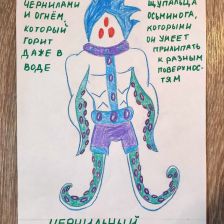 ЧЕРНИЛАМИ
И ОГНЁМ,
КОТОРЫЙ
ГОРИТ
ДАЖЕ В
ВОДЕ
ЩУПАЛЬЦА
ОСЬМИНОГА,
КОТОРЫМИ
ОН УМЕЕТ
ПРИЛИПАТЬ
К РАЗНЫМ
ПОВЕРХНОС-
ТЯМ
ЧЕРНИЛЬНЫЙ